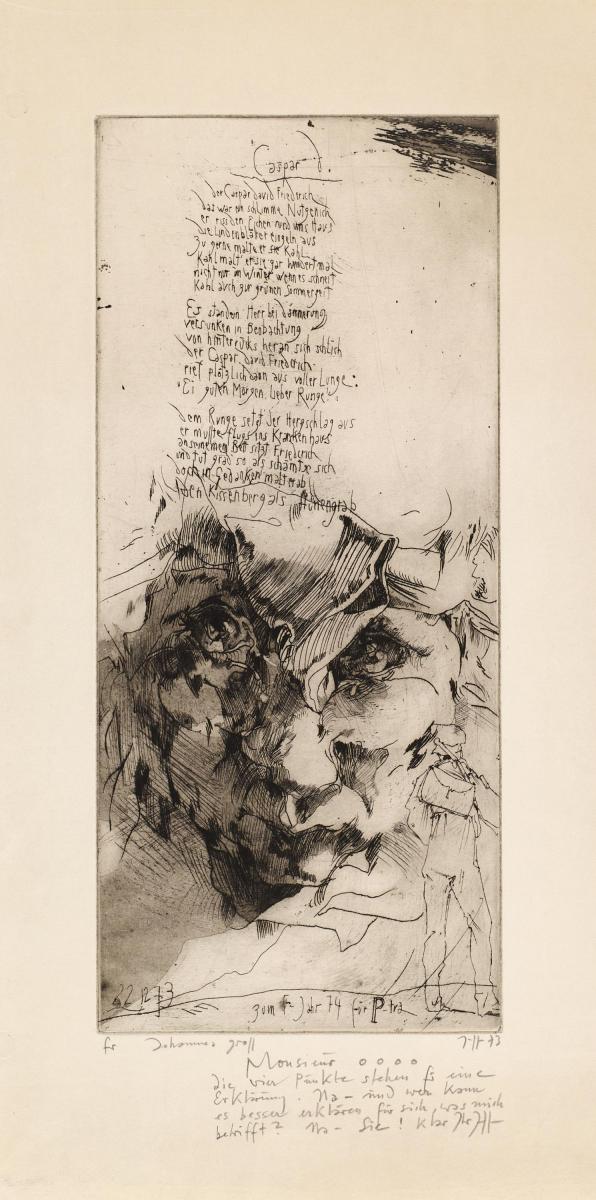 Caspar D.
der Caspar david Friederich
das war ein schlimmer Nutgenich
er riss den Eichen rund ums Haus
die Lindenbläter eingeln aus
zu gerne malte er sie Kahl
Kahl malt er sie gar hundertmal
nicht nur im Winter wenn es schneit
Kahl auch zur grünen Sommerzeit
Es standen Herr bei dämmerung
versunken in Beobachtung
von hinterrücks heran sich schlich
der Caspar david Friederich
rief plötzlich dann aus voller Lunge:
"Ei guten Morgen, lieber Runge"!
dem Runge setzt der Herzschlag aus
er mußte flugs ins Krankenhaus
an seinem Bett sitzt Friederich
und tut grad so als schämt er sich
doch in Gedanken malt er ab
den Kissenberg als Hünengrab
22 12 73
zum Jahr 74 für Petra
fr Johannes Groß
73
Monsieur o o o o
die vier Punkte stehen fs eine
Erklärung. Na - und wer kann
es besser erklären für sich, was mich
betrifft? Na - Sie! Klar Ihr